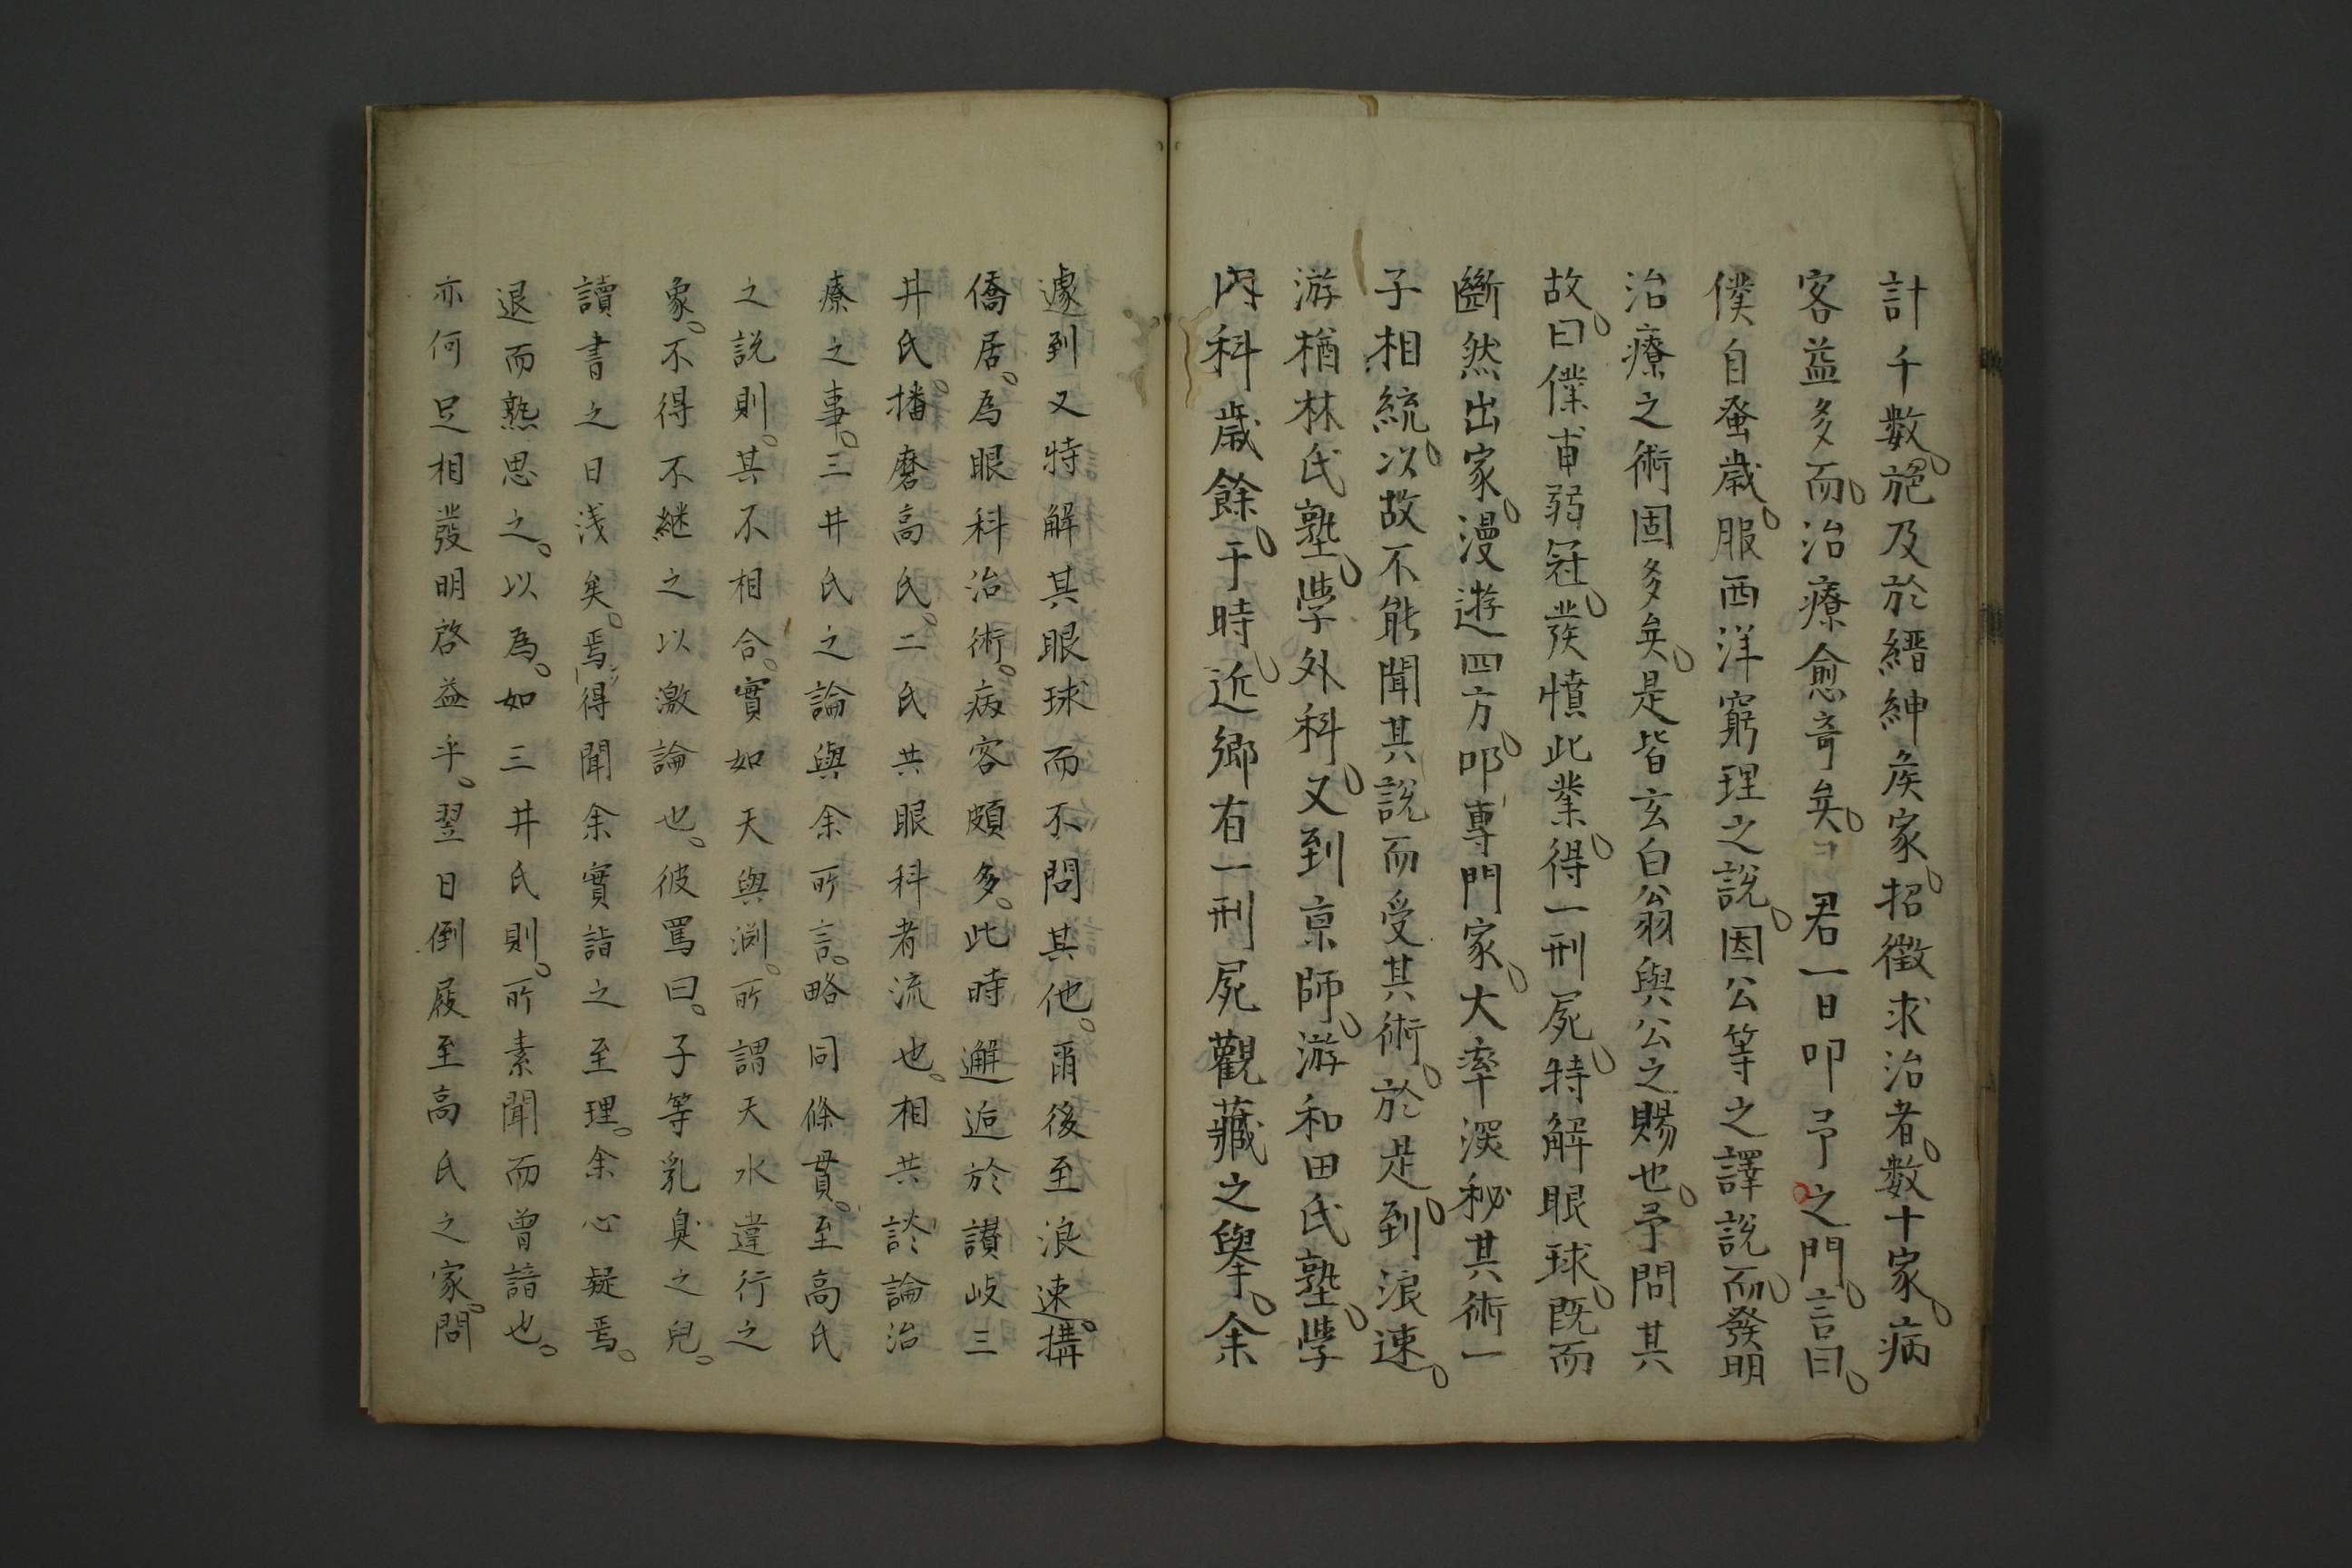 計千數。施及於縉紳矦家。招徵求治者。数十家。病
客益多而。治療愈奇矣。君一日叩予之門。言曰。
僕自蚤歳。服西洋窮理之說。因公等之譯說而。發明
治療之術固多矣。是皆玄白翁與公之賜也。予問其
故。曰僕甫弱冠。發憤此業。得一刑屍。特解眼球。既而
斷然出家。漫遊四方。叩專門家。大率深秘其術一
子相統。以故不能聞其說而受其術。於是。到浪速。
游楢林氏塾。學外科。又到京師。游和田氏塾。學
内科歳餘。于時。近鄉有一刑屍觀藏之舉。余
遽到又特解其眼球而不問其他。爾後至浪速。搆
僑居。為眼科治術。病客頗多。此時邂逅於讃岐三
井氏。播磨高氏。二氏共眼科者流也。相共診論治
療之事。三井氏之論與余所言。略同條貫。至高氏
之說則。其不相合。實如天與渕。所謂天水違行之
象。不得不継之以激論也。彼罵曰。子等乳臭之兒。
讀書之日浅矣。焉得聞余實詣之至理。余心疑焉。
退而熟思之。以為。如三井氏則。所素聞而曽諳也。
亦何足相發明啓益乎。翌日倒屐至高氏之家。問